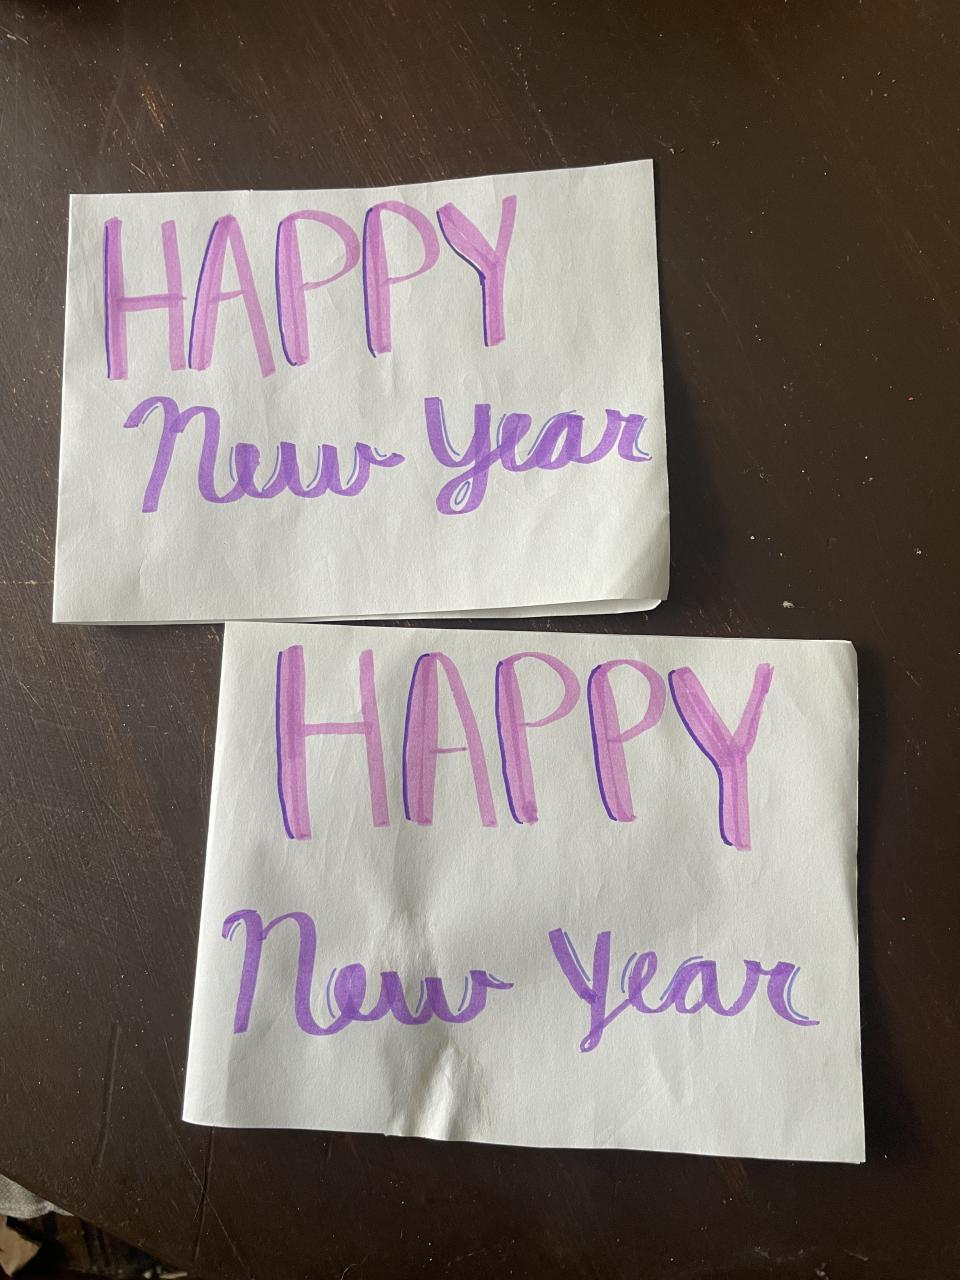 HAPPY
New Year
HAPPY
New Year